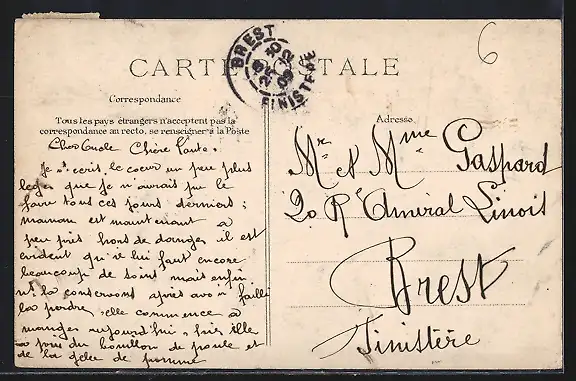 CARTE POSTALE
BREST
FINISTERE
6
Correspondance
Tous les pays étrangers n'acceptent pas la
correspondance au recto, se renseigner à la Poste
Adresse
Cher Oncle Chère Tante.
Je ecris le coeur un peu plus
leger que je n'aurais pu le
faire tous ces jours derniers;
maman est maintenant à
peu près hors de danger il est
evident qu'il lui faut encore
beaucoup de soins mais enfin
ns. la conservons après avoir failli
la perdre, elle commence à
manger aujourd'hui, hier elle
a pris du bouillon de poule et
de la gelée de pomme
Mr et Mme Gaspard
20 Re Amiral Linois
Brest
Finistère